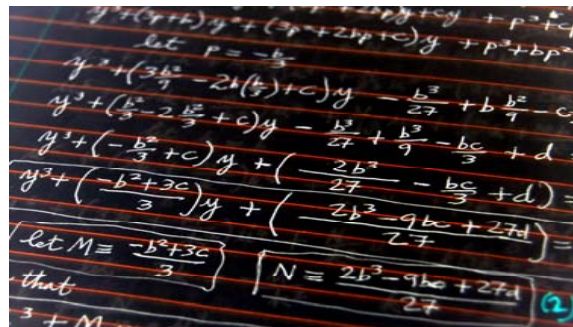 y³ + (3p+b)y² + (3p² + 2bp + c)y + p³ + bp²
let p = -b/3
y³ + (3b²/9 - 2b(b/3) + c)y - b³/27 + b b²/9 - c
y³ + (b²/3 - 2b²/3 + c)y - b³/27 + b³/9 - bc/3 + d
y³ + (-b²/3 + c)y + (2b³/27 - bc/3 + d) =
y³ + ((-b²+3c)/3)y + ((2b³ - 9bc + 27d)/27) =
let M ≡ (-b²+3c)/3 N ≡ (2b³ - 9bc + 27d)/27 (2)
that
³ + M